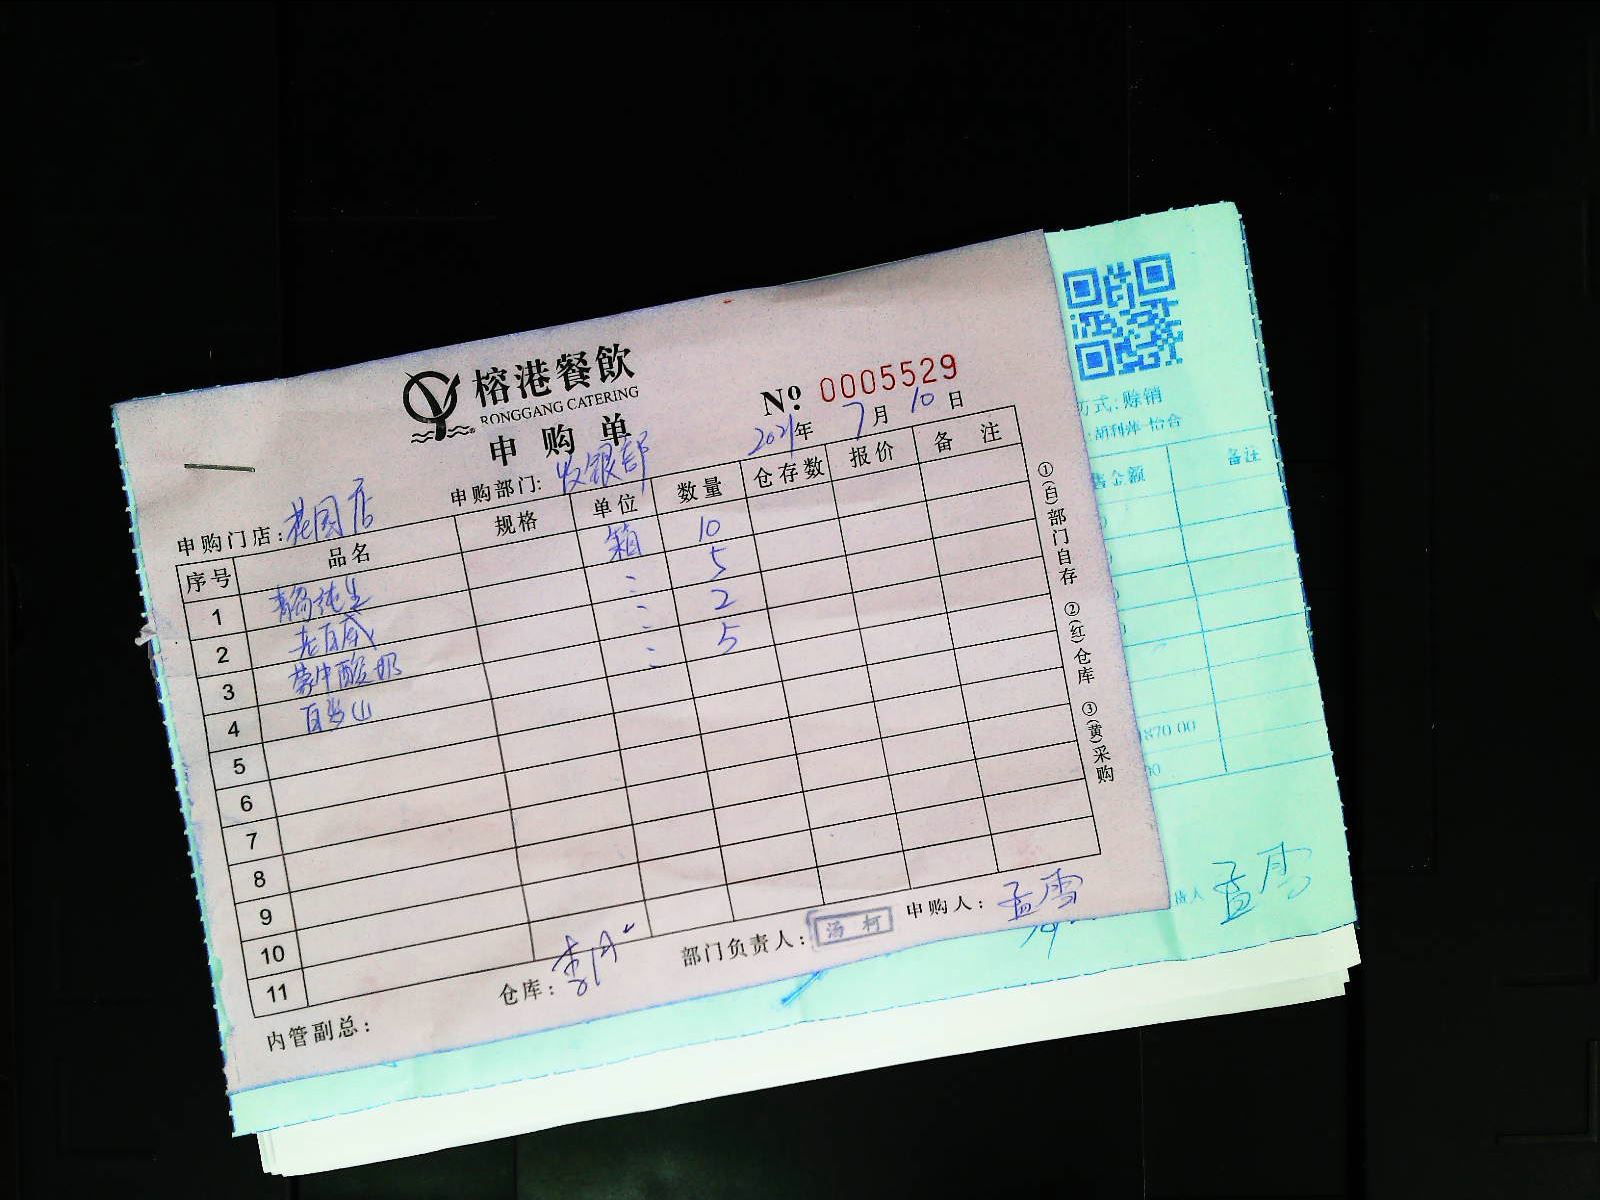 榕港餐飲
RONGGANG CATERING
申购单
№ 0005529
2021年 7月 10日
申购门店: 花园店 申购部门: 收银部
序号 品名 规格 单位 数量 仓存数 报价 备注
1 青岛纯生 箱 10
2 老百威 〃 5
3 蒙牛酸奶 〃 2
4 百岁山 〃 5
5
6
7
8
9
10
11
内管副总: 仓库: 部门负责人: 汤柯 申购人: 孟雪
①(白)部门自存 ②(红)仓库 ③(黄)采购
方式: 赊销
: 胡利萍 怡合
售金额 备注
870.00
00
人 孟雪